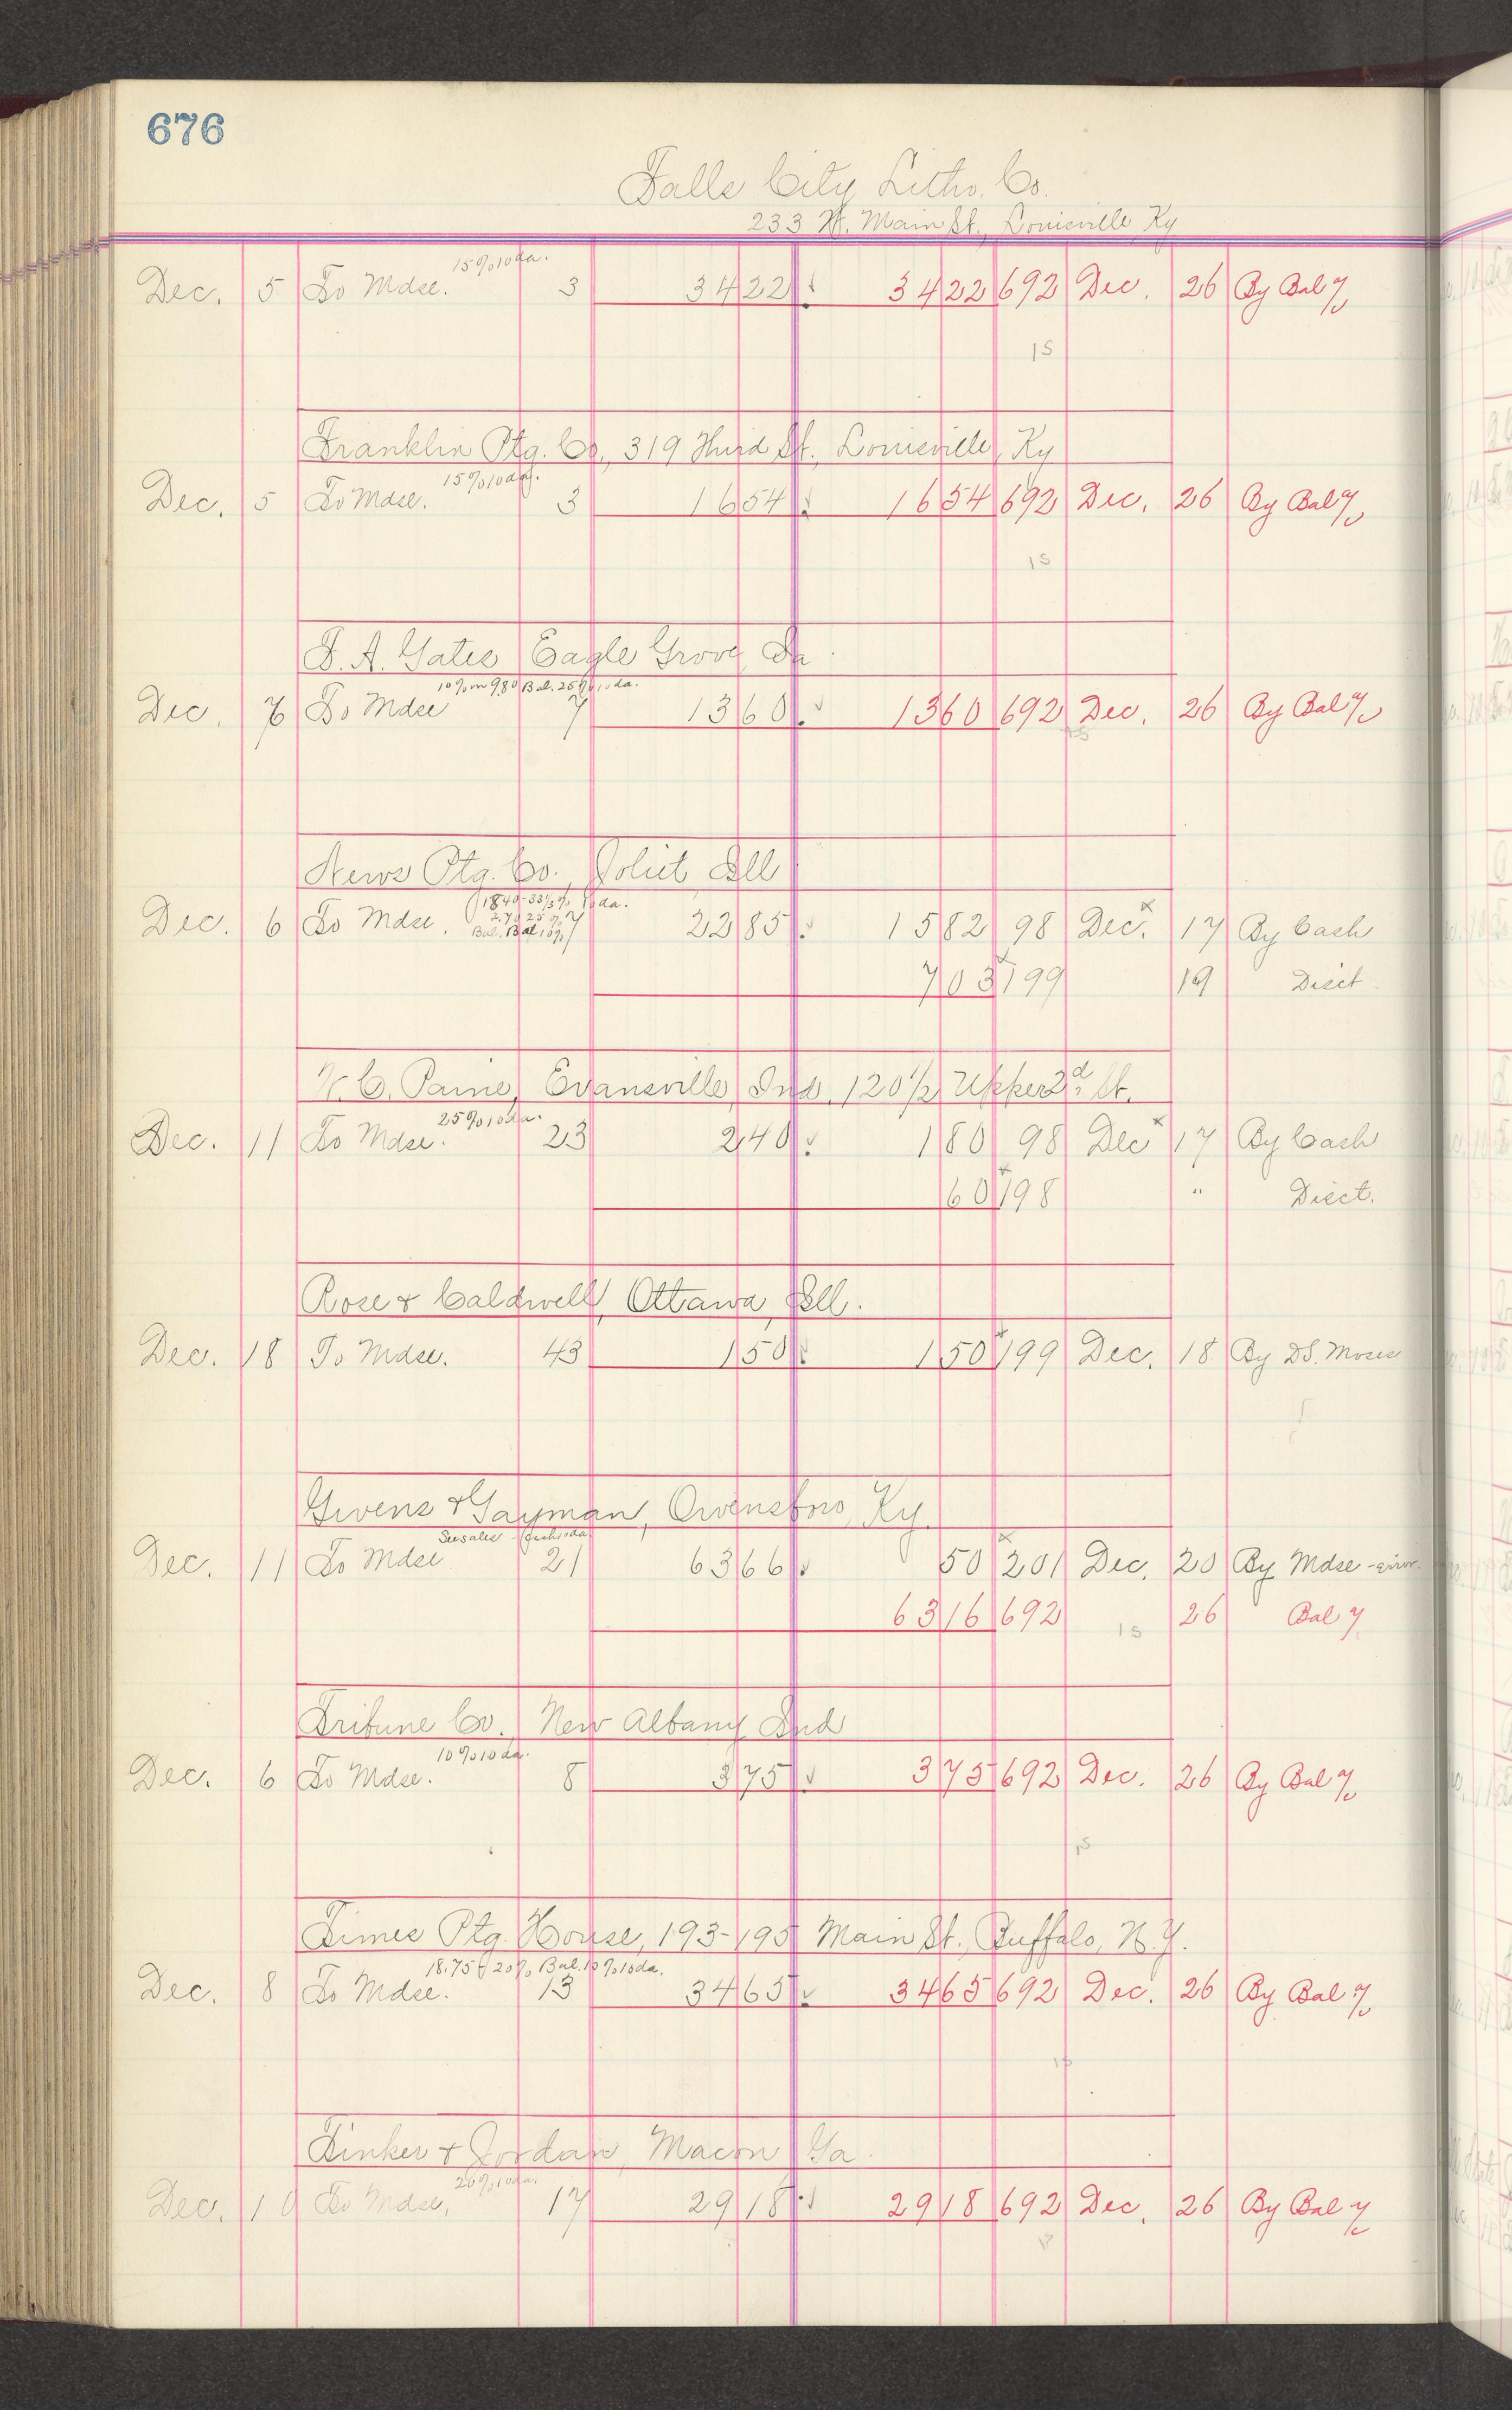 676
Falls City Litho. Co.
233 W. Main St., Louisville Ky
15% 10 da.
Dec. 5 To Mdse. 3 34 22 34 22 692 Dec. 26 By Bal
15
Franklin Ptg. Co, 319 Third St., Louisville, Ky
15% 10 da.
Dec. 5 To Mdse. 3 16 54 16 54 692 Dec. 26 By Bal
15
F. A. Gates Eagle Grove, Ia
10% on 9.80 Bal. 25% 10 da.
Dec. 6 To Mdse 7 13 60 13 60 692 Dec. 26 By Bal
15
News Ptg. Co., Joliet, Ill
18 40 - 33 1/3% 10 da.
2.70 25%
Bal. 10%
Dec. 6 To Mdse. 7 22 85 15 82 98 Dec. x 17 By Cash
7 03 199 19 Disct
W. C. Paine, Evansville, Ind. 120 1/2 Upper 2d St.
25% 10 da.
Dec. 11 To Mdse. 23 2 40 1 80 98 Dec x 17 By Cash
60 198 " Disct.
Rose & Caldwell, Ottawa, Ill.
Dec. 18 To Mdse. 43 1 50 1 50 199 Dec. 18 By D.S. Moses
Givens & Gayman, Owensboro, Ky.
Dec. 11 To Mdse 21 63 66 50 201 Dec. 20 By Mdse - error
63 16 692 15 26 Bal
Tribune Co., New Albany Ind
10% 10 da.
Dec. 6 To Mdse. 8 3 75 3 75 692 Dec. 26 By Bal
15
Times Ptg. House, 193-195 Main St., Buffalo, N.Y.
18.75 20% Bal. 10% 10 da.
Dec. 8 To Mdse. 13 34 65 34 65 692 Dec. 26 By Bal
15
Tinker & Jordan, Macon, Ga.
10 da.
Dec. 10 To Mdse, 17 29 18 29 18 692 Dec. 26 By Bal